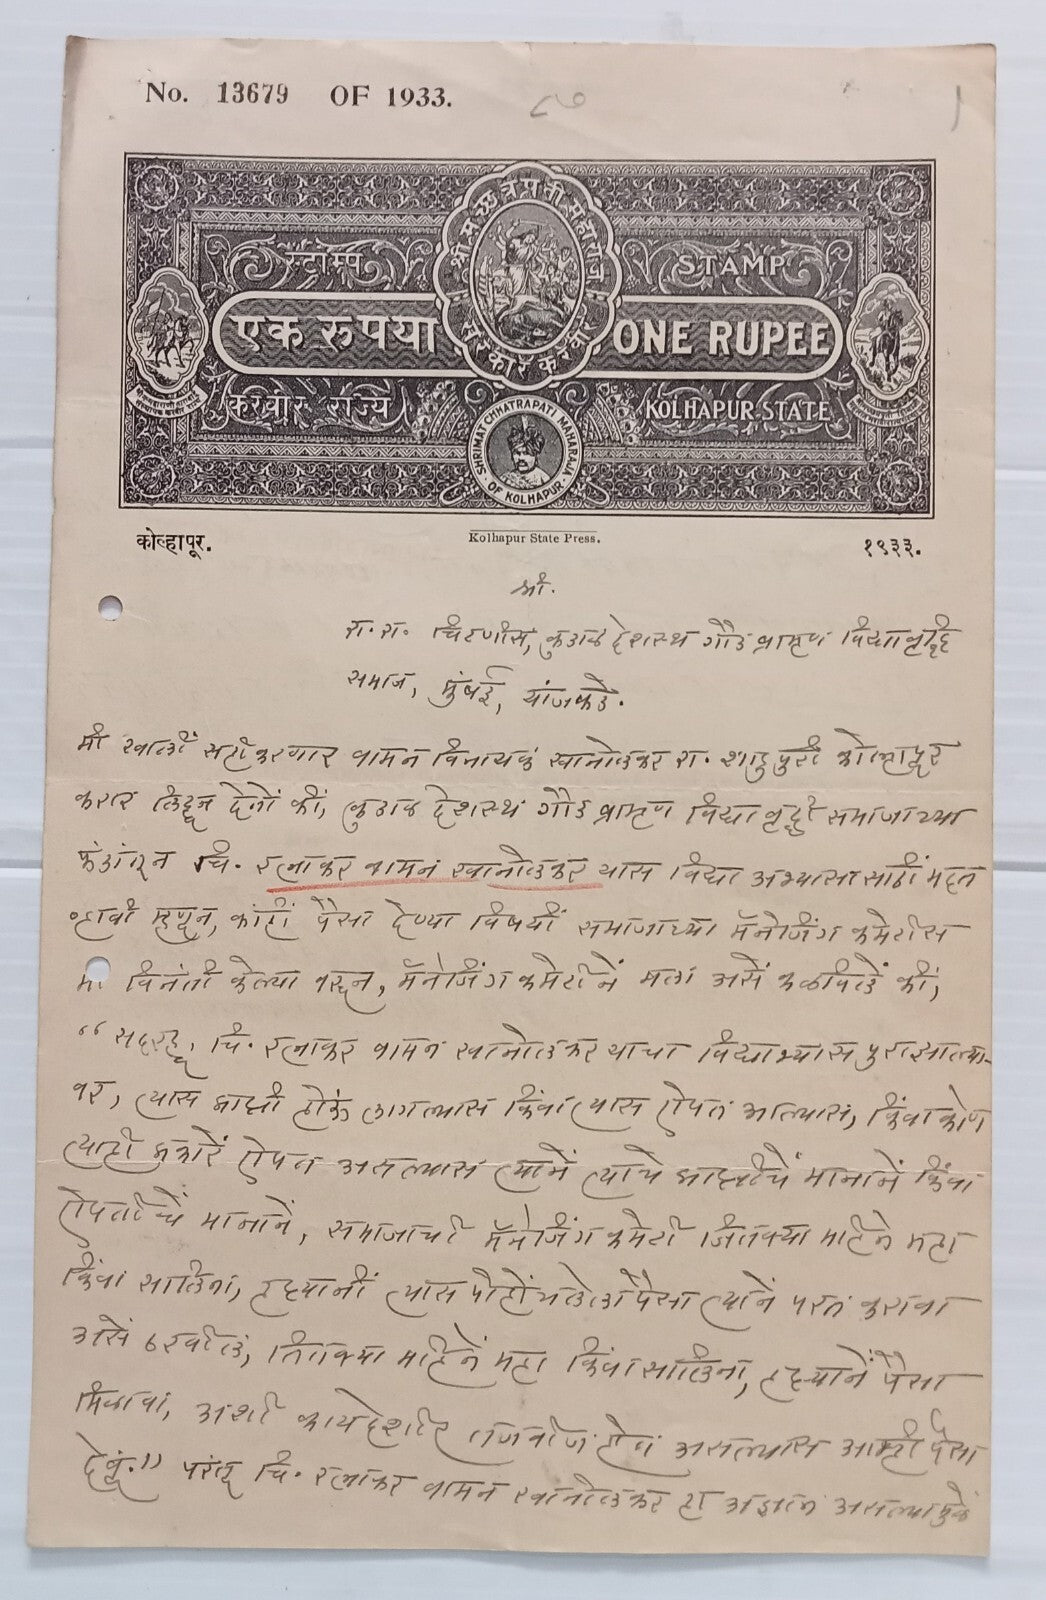 No. 13679 OF 1933.
श्रीमच्छत्रपती महाराज
सरकार करवीर
स्टाम्प STAMP
एक रुपया ONE RUPEE
करवीर राज्य KOLHAPUR STATE
SHRIMAT CHHATRAPATI MAHARAJA OF KOLHAPUR
कोल्हापूर. Kolhapur State Press. १९३३.
श्री.
रा. रा. चिटणीस, कुडाळ देशस्थ गौड ब्राम्हण विद्यावृद्धि
समाज, मुंबई, यांजकडे.
मी खालीं सही करणार वामन विनायक खानोलकर रा. शाहुपुरी कोल्हापूर
करार लिहून देतों कीं, कुडाळ देशस्थ गौड ब्राम्हण विद्यावृद्धि समाजाच्या
फंडांतून चि. रत्नाकर वामन खानोलकर यास विद्या अभ्यासासाठीं मदत
व्हावी म्हणून, कांहीं पैसा देण्या विषयीं समाजाच्या मॅनेजिंग कमेटीस
मी विनंती केल्या वरून, मॅनेजिंग कमेटीनें मला असें कळविलें कीं,
“सदरहू, चि. रत्नाकर वामन खानोलकर याचा विद्याभ्यास पुरा झाल्या-
वर, त्यास प्राप्ती होऊं लागल्यास किंवा त्यास ऐपत आल्यास, किंवा कोण
त्याही प्रकारें ऐपत असल्यास त्यानें त्याचे प्राप्तीचें मानानें किंवा
ऐपतीचें मानानें, समाजाची मॅनेजिंग कमेटी जितक्या माहिने महा
किंवा सालिना, हप्त्यानीं त्यास पोहोंचलेला पैसा त्यानें परत करावा
असें ठरवील, तितक्या माहिने महा किंवा सालिना, हप्त्यानें पैसा
मिळावा, अशी कायदेशीर तजवीज होत असल्यास आम्ही पैसा
देवूं.” परंतू चि. रत्नाकर वामन खानोलकर हा अज्ञान असल्यामुळें